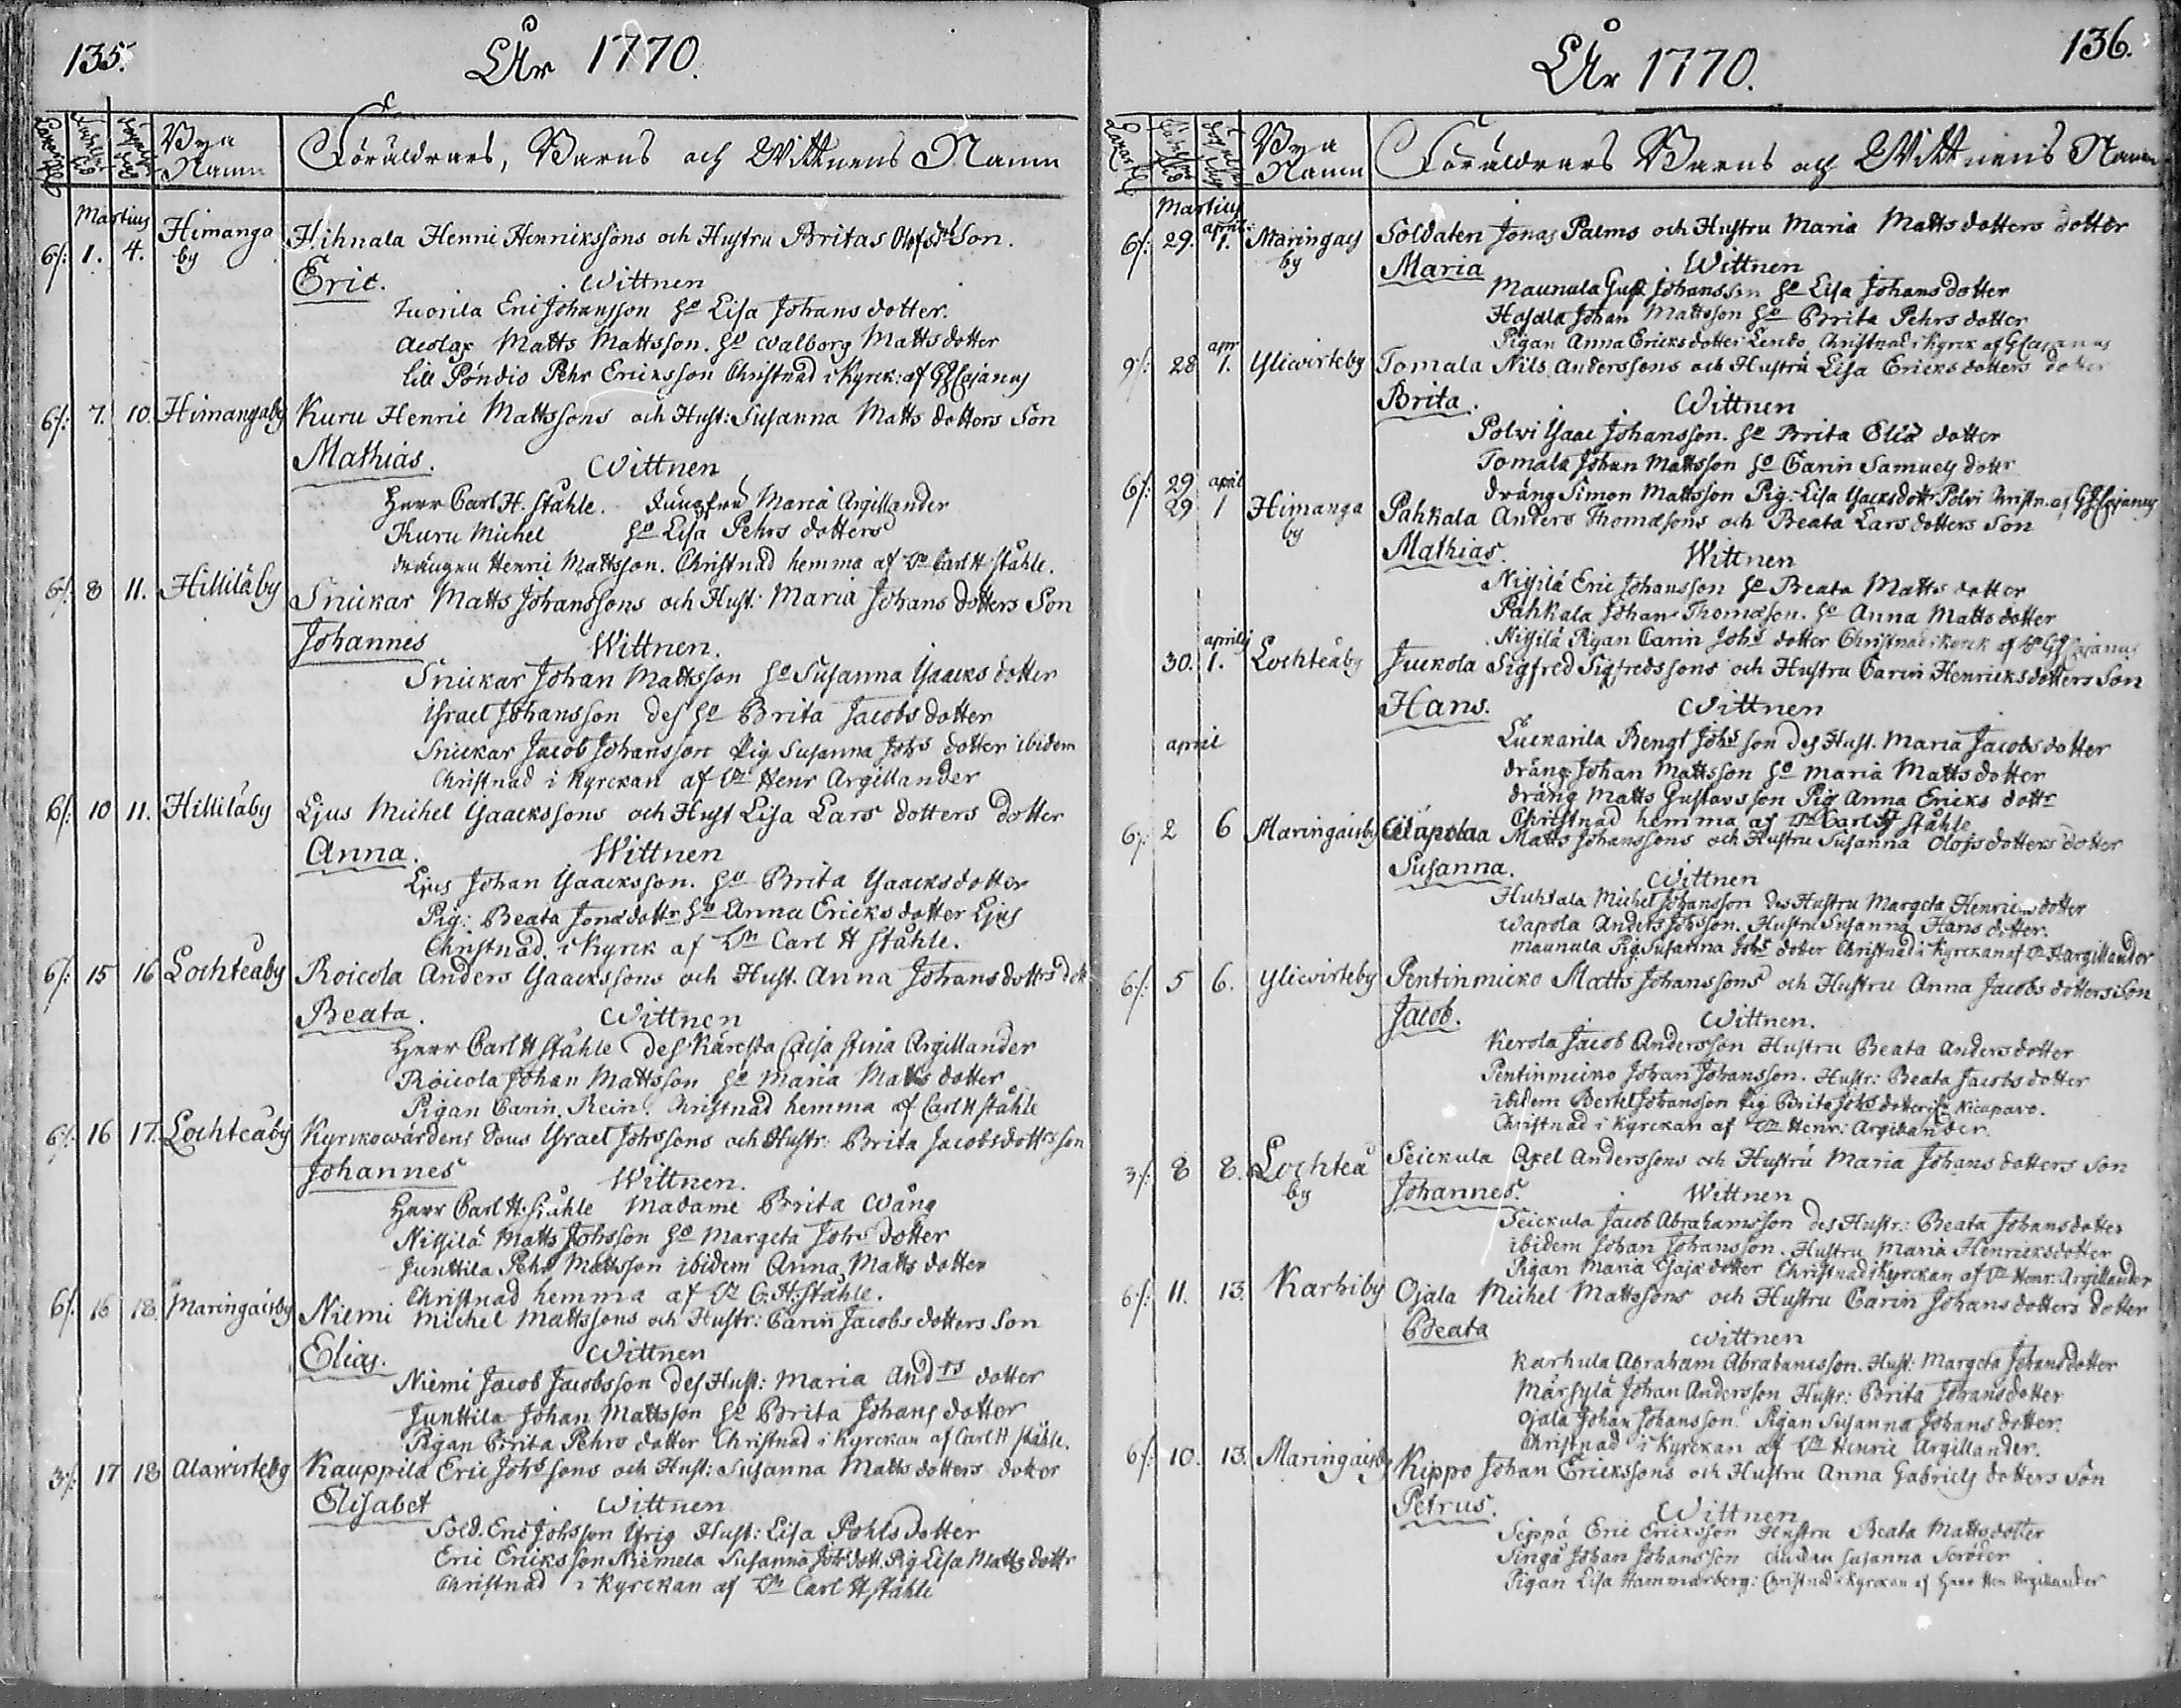 135.
År 1770.
Bya Namn
Föräldrars, Barns och Wittnens Namn
Martius
6/: 1. 4. Himanga by Hihnala Henric Henrikssons och Hustru Britas Olofsdr Son.
Eric. Wittnen
Tuorila Eric Johansson Ho Lisa Johans dotter.
Matts Mattsson. Ho Walborg Matts dotter
Lill Pöndiö Pehr Ericksson Christnad i Kyrck: af Cajanus
6/: 7. 10. Himangaby Kuru Henric Mattssons och Hust: Susanna Matts dotters Son
Mathias. Wittnen
Herr Carl H. Ståhle. Jungfru Maria Argillander
Kuru Michel Ho Lisa Pehrs dotters
drängen Henric Mattsson. Christnad hemma af Dn Carl H Ståhle.
6/: 8 11. Hilliläby Snickar Matts Johanssons och Hust: Maria Johans dotters Son
Johannes Wittnen.
Snickar Johan Mattsson Ho Susanna Ysaacks dotter
Ysrael Johansson des Ho Brita Jacobs dotter
Snickar Jacob Johansson Pig Susanna Johs dotter ibidem
Christnad i Kyrckan af Dn Henr Argillander
6/: 10 11. Hilliläby Ljus Michel Ysaackssons och Hust Lisa Lars dotters dotter
Anna. Wittnen
Ljus Johan Ysaacksson. Ho Brita Ysaacksdotter
Pig: Beata Jonædottr Ho Anna Ericks dotter Ljus
Christnad i Kyrck af Dn Carl H Ståhle.
6/: 15 16 Lochteåby Roicola Anders Ysaackssons och Hust. Anna Johansdotters dot
Beata. Wittnen
Herr Carl H Ståhle Des Käresta Caisa Stina Argillander
Roicola Johan Mattsson Ho Maria Matts dotter
Pigan Carin Rein. Christnad hemma af Carl H Ståhle
6/: 16 17. Lochteåby Kyrkowärdens Sons Ysrael Johssons och Hustr: Brita Jacobsdottrs son
Johannes Wittnen.
Herr Carl H. Ståhle Madame Brita Wång
Niskilä Matts Johsson Ho Margeta Johs dotter
Junttila Pehr Mattsson ibidem Anna Matts dotter
Christnad hemma af Dn C. H. Ståhle.
6/: 16 18. Maringaisby Niemi Michel Mattssons och Hustr: Carin Jacobs dotters Son
Elias. Wittnen
Niemi Jacob Jacobsson des Hust: Maria Andrs dotter
Junttila Johan Mattsson Ho Brita Johans dotter
Pigan Brita Pehrs dotter Christnad i Kyrckan af Carl H Ståhle.
3/: 17 18 Alawirteby Kauppila Eric Johssons och Hust: Susanna Matts dotters dotter
Elisabet Wittnen
Sold. Eric Johsson Yrig Hust: Lisa Pohls dotter
Eric Ericksson Niemela Susanna Johsdott. Pig Lisa Matts dottr
Christnad i Kyrckan af Dn Carl H Ståhle
136.
År 1770.
Bya Namn
Föräldrars Barns och Wittnens Namn
Martius
6/: 29. april 1. Maringais by Soldaten Jonas Palms och Hustru Maria Matts dotters dotter
Maria Wittnen
Maunula Gust. Johansson Ho Lisa Johans dotter
Hasala Johan Mattsson Ho Brita Pehrs dotter
Pigan Anna Ericks dotter Christnad i Kyrck af Cajanus
9/: 28 apr 1. Yliwirteby Tomala Nils Anderssons och Hustru Lisa Ericks dotters dotter
Brita. Wittnen
Polvi Ysaac Johansson. Ho Brita Eliæ dotter
Tomala Johan Mattsson Ho Carin Samuels dottr
dräng Simon Mattsson Pig: Lisa Ysacksdottr Polvi Christn. af Cajanus
6/: 29 april
29 1 Himanga by Pahkala Anders Thomæsons och Beata Lars dotters Son
Mathias. Wittnen
Niskilä Eric Johansson Ho Beata Matts dotter
Pahkala Johan Thomæson. Ho Anna Matts dotter
Niskilä Pigan Carin Johs dotter Christnad i Kyrck af Cajanus
30. aprilis 1. Lochteåby Juckola Sigfred Sigfredssons och Hustru Carin Henricksdotters Son
Hans. Wittnen
Luckarila Bengt Johsson des Hust. Maria Jacobs dotter
dräng Johan Mattsson Ho Maria Matts dotter
dräng Matts Gustavsson Pig Anna Ericks dottr
Christnad hemma af Dn Carl H Ståhle
april
6/: 2 6 Maringaisby Matts Johanssons och Hustru Susanna Olofsdotters dotter
Susanna. Wittnen
Huhtala Michel Johansson des Hustru Margeta Henricksdotter
Wapola Anders Johsson. Hustru Susanna Hans dotter.
Maunula Pig Susanna Johs dotter Christnad i Kyrckan af Dn H Argillander
6/: 5 6. Yliwirteby Pentinmicko Matts Johanssons och Hustru Anna Jacobs dotters Son
Jacob. Wittnen.
Kerola Jacob Andersson Hustru Beata Andersdotter
Pentinmicko Johan Johansson. Hustr: Beata Jacobs dotter
ibidem Bertel Johansson Pig Brita Johs dotter
Christnad i Kyrckan af Dn Henr: Argillander.
3/: 8 8. Lochteå by Seickula Axel Anderssons och Hustru Maria Johans dotters Son
Johannes. Wittnen
Seickula Jacob Abrahamsson des Hustr: Beata Johansdotter
ibidem Johan Johansson. Hustru Maria Henricksdotter
Pigan Maria dotter Christnad i Kyrckan af Dn Henr: Argillander
6/: 11. 13. Karhiby Ojala Michel Mattssons och Hustru Carin Johans dotters dotter
Beata Wittnen
Karhula Abraham Abrahamsson. Hust: Margeta Johansdotter
Märsylä Johan Andersson Hustr: Brita Johansdotter
Ojala Johan Johansson. Pigan Susanna Johans dotter.
Christnad i Kyrckan af Dn Henric Argillander.
6/: 10. 13. Maringaisby Kippo Johan Erickssons och Hustru Anna Gabriels dotters Son
Petrus. Wittnen
Seppä Eric Ericksson Hustru Beata Matts dotter
Singå Johan Johansson Susanna
Pigan Lisa Hammarberg: Christnad i Kyrckan af Herr Hen Argillander